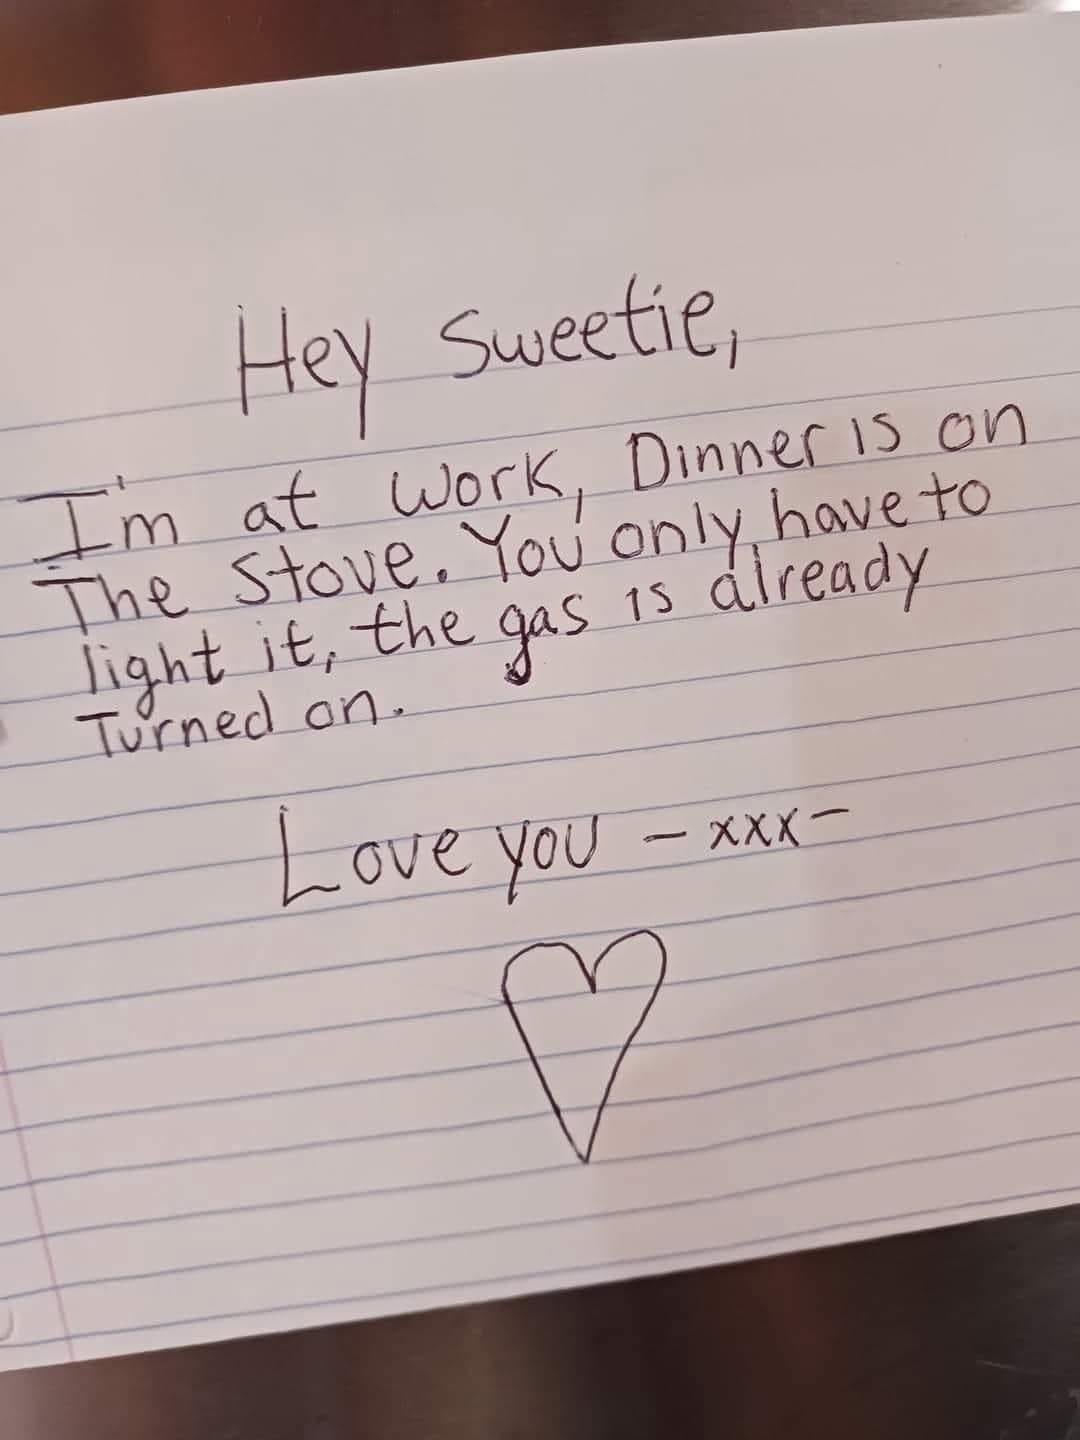 Hey Sweetie,
I'm at Work, Dinner is on
The Stove. You only have to
light it, the gas is already
Turned on.
Love you - xxx -